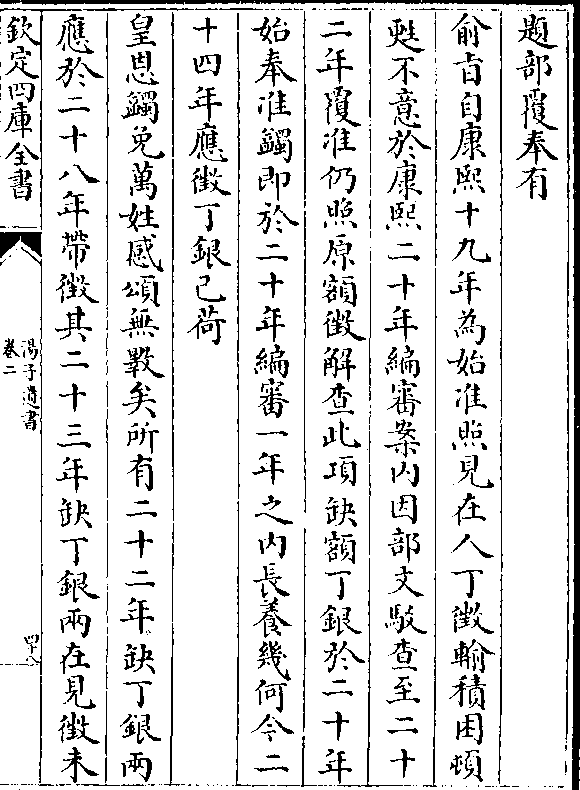 題部覆奉有
俞旨自康熙十九年為始准照見在人丁徵輸積困頓
甦不意於康熙二十年編審案内因部文駁查至二十
二年覆准仍照原額徵解查此項缺額丁銀於二十年
始奉准蠲即於二十年編審一年之内長養幾何今二
十四年應徵丁銀已荷
皇恩蠲免萬姓感頌無斁矣所有二十二年缺丁銀兩
應於二十八年帶徵其二十三年缺丁銀兩在見徵未
欽定四庫全書
湯子遺書
卷二
四十八